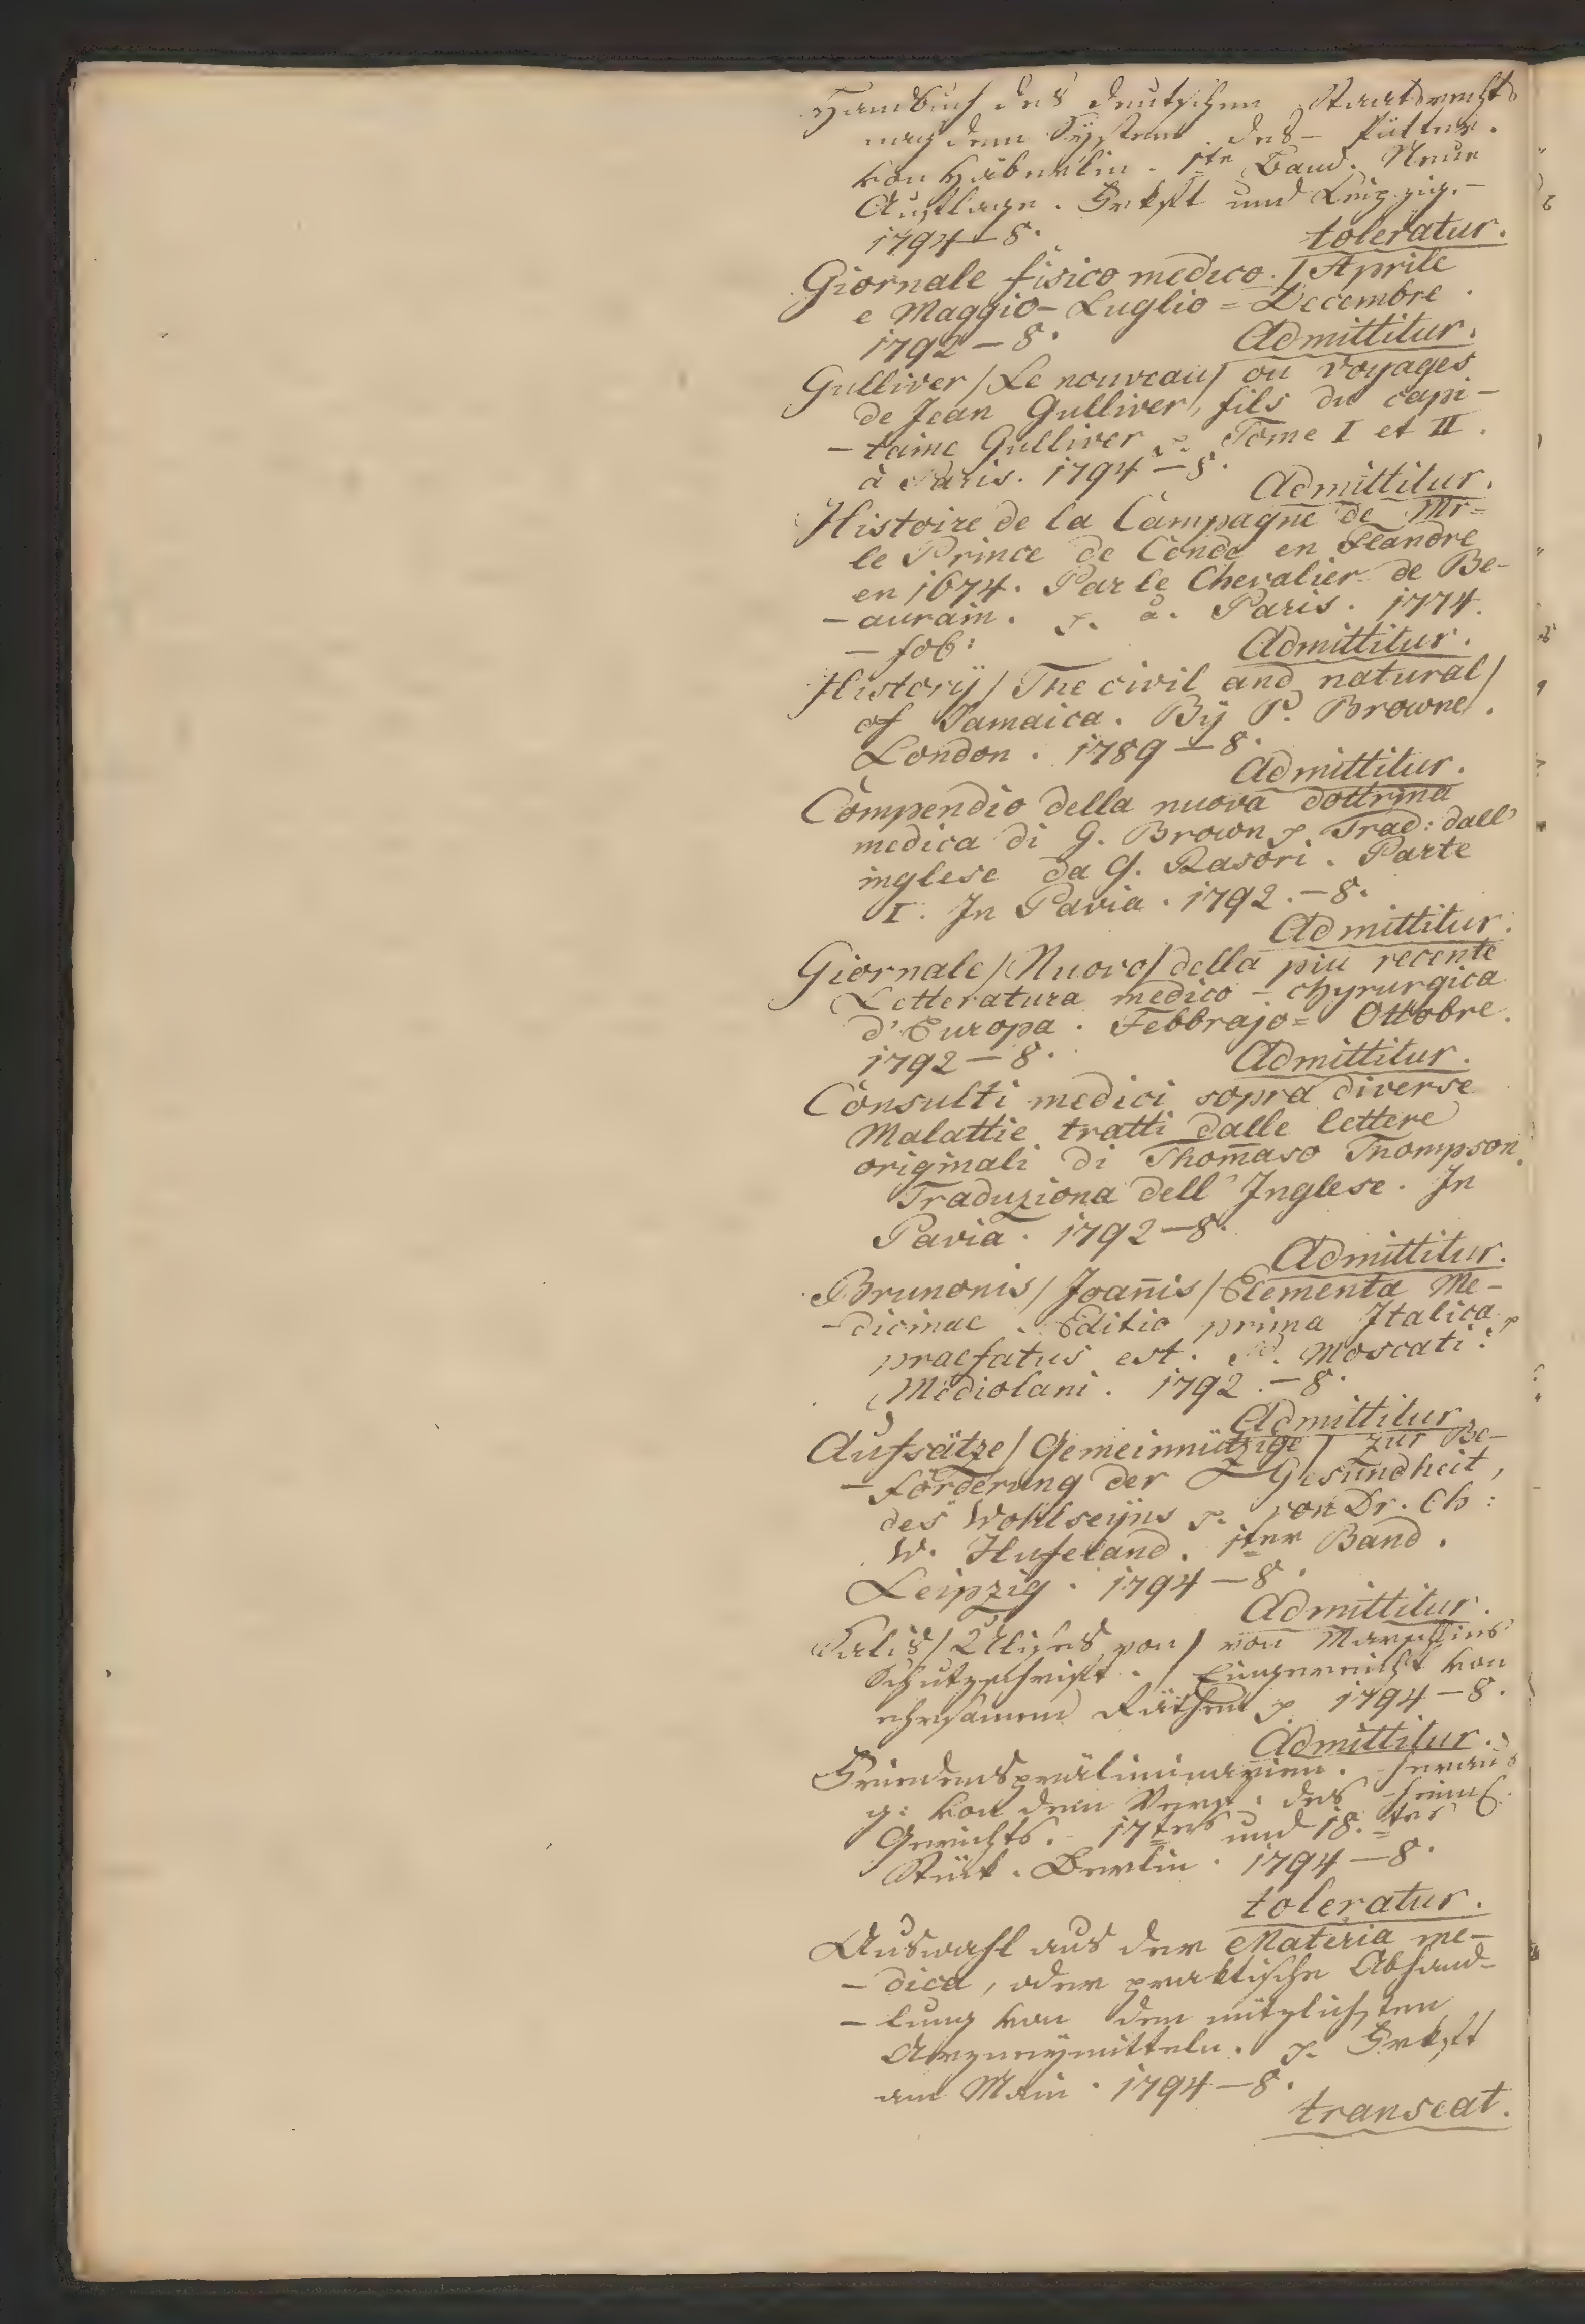 Handbuch des deutschen Staatsrechts
nach dem System des – Pütter.
von Häberlin. 1te Band. Neue
Auflage. Frkft und Leipzig. –
1794 – 8.
toleratur.
Giornale fisico medico. / Aprile
e Maggio – Luglio = Decembre.
1792 – 8.
Admittitur.
Gulliver / Le nouveau / ou voyages
de Jean Gulliver, fils du capi-
- taine Gulliver p. Tome I et II.
à Paris. 1794 – 8.
Admittitur.
Histoire de la Campagne de Mr=
le Prince de Condé en Flandre
en 1674. Par le Chevalier de Be-
- aurain. p. à. Paris. 1774.
– fol:
Admittitur.
Historÿ / The civil and natural /
of Jamaica. Bÿ P. Browne.
London. 1789 – 8.
Admittitur.
Compendio della nuova dottrina
medica di G. Brown p Trad: dall'
inglese da G. Rasori. Parte
I. In Pavia. 1792. – 8.
Admittitur.
Giornale / Nuovo / della piu recente
Letteratura medico – chyrurgica
d'Europa. Febbrajo = Ottobre.
1792 – 8.
Admittitur.
Consulti medici sopra diverse
Malattie tratti dalle lettere
originali di Thom̄aso Thompson.
Traduziona dell' Inglese. In
Pavia. 1792 – 8.
Admittitur.
Brunonis / Joan̄is / Elementa Me-
- dicinae. Editio prima Italica p
praefatus est. P. Moscati.
Mediolani. 1792. – 8.
Admittitur.
Aufsätze / Gemeinnützige / zur Be-
- förderung der Gesundheit,
des Wohlseÿns p. von Dr. Ch:
W. Hufeland. 1ter Band.
Leipzig. 1794 – 8.
Admittitur.
Salis / Ulises von / von Marschlins
Schutzschrift. Eingereicht von
ehrsamen Räthen p 1794 – 8.
Admittitur.
Friedenspräliminarien. Heraus
g: von dem Verf: des heiml.
Gerichts. 17tes und 18.tes
Stück. Berlin. 1794 – 8.
toleratur.
Auswahl aus der Materia me-
- dica, oder praktische Abhand-
- lung von den nützlichsten
Arzneymitteln. p. Frkft
am Main. 1794 – 8.
transeat.